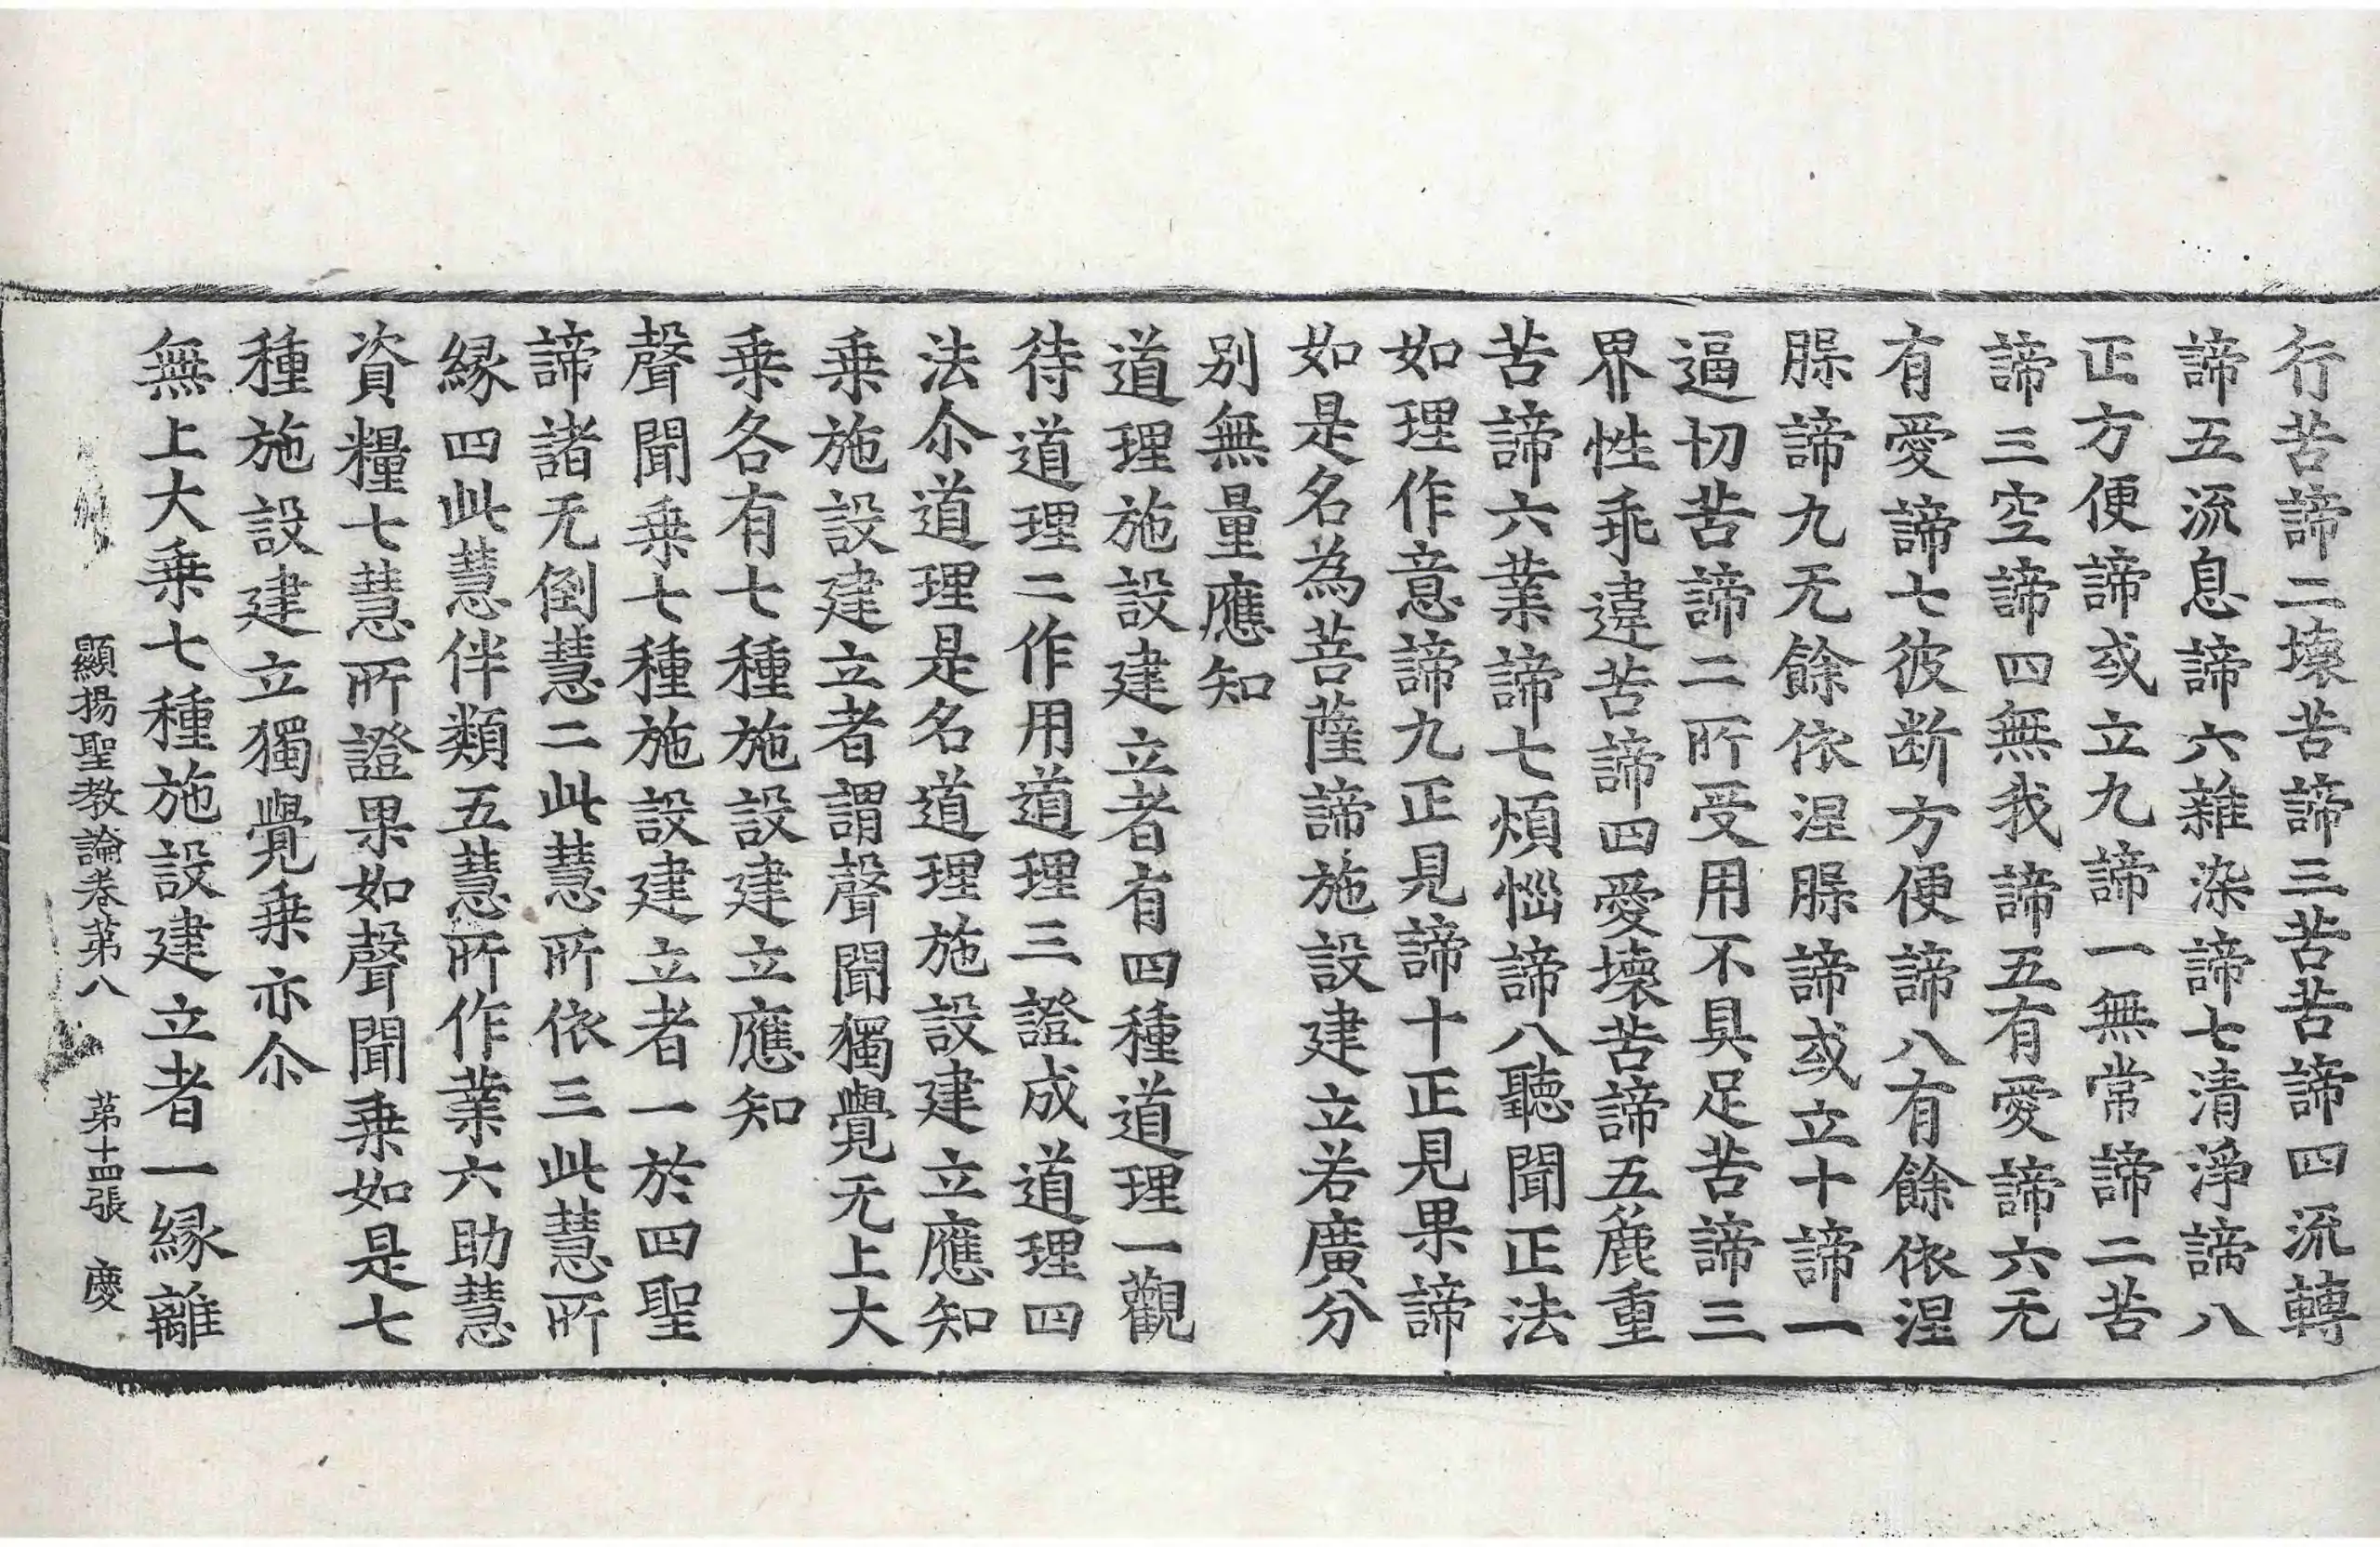 行苦諦二壞苦諦三苦苦諦四流轉
諦五流息諦六雜染諦七清淨諦八
正方便諦或立九諦一無常諦二苦
諦三空諦四無我諦五有愛諦六无
有愛諦七彼断方便諦八有餘依涅
槃諦九无餘依涅槃諦或立十諦一
逼切苦諦二所受用不具足苦諦三
界性乖違苦諦四愛壞苦諦五麁重
苦諦六業諦七煩惱諦八聽聞正法
如理作意諦九正見諦十正見果諦
如是名為菩薩諦施設建立若廣分
别無量應知
道理施設建立者有四種道理一觀
待道理二作用道理三證成道理四
法尒道理是名道理施設建立應知
乗施設建立者謂聲聞獨覺无上大
乗各有七種施設建立應知
聲聞乗七種施設建立者一於四聖
諦諸无倒慧二此慧所依三此慧所
縁四此慧伴類五慧所作業六助慧
資糧七慧所證果如聲聞乗如是七
種施設建立獨覺乗亦尒
無上大乗七種施設建立者一縁離
顯揚聖教論卷苐八 苐十四張 慶